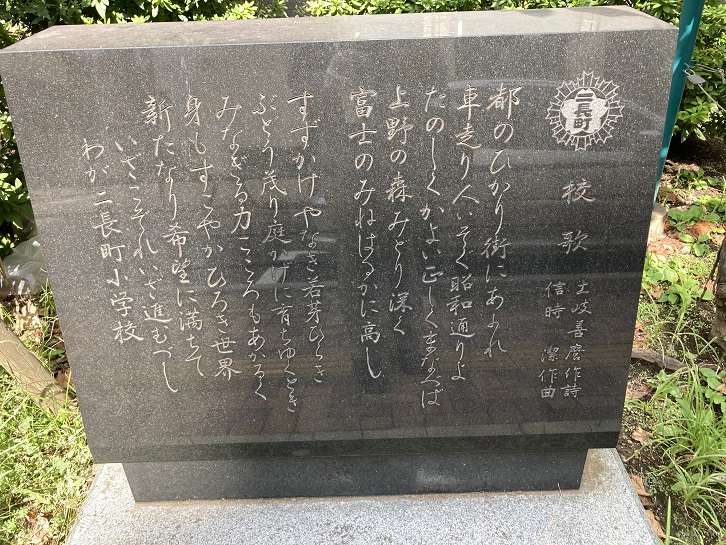 二長町
校歌
土岐善麿作詩
信時 潔作曲
都のひかり街にあふれ
車走り人いそぐ昭和通りよ
たのしくかよい正しくまなべば
上野の森みどり深く
富士のみねはるかに高し
すずかけやなぎ若芽ひらき
ぶどう茂り庭かげに育ちゆくとき
みなぎる力こころもあかるく
身もすこやかひろき世界
新たなり希望に満ちて
いざこぞれいざ進むべし
わが二長町小学校